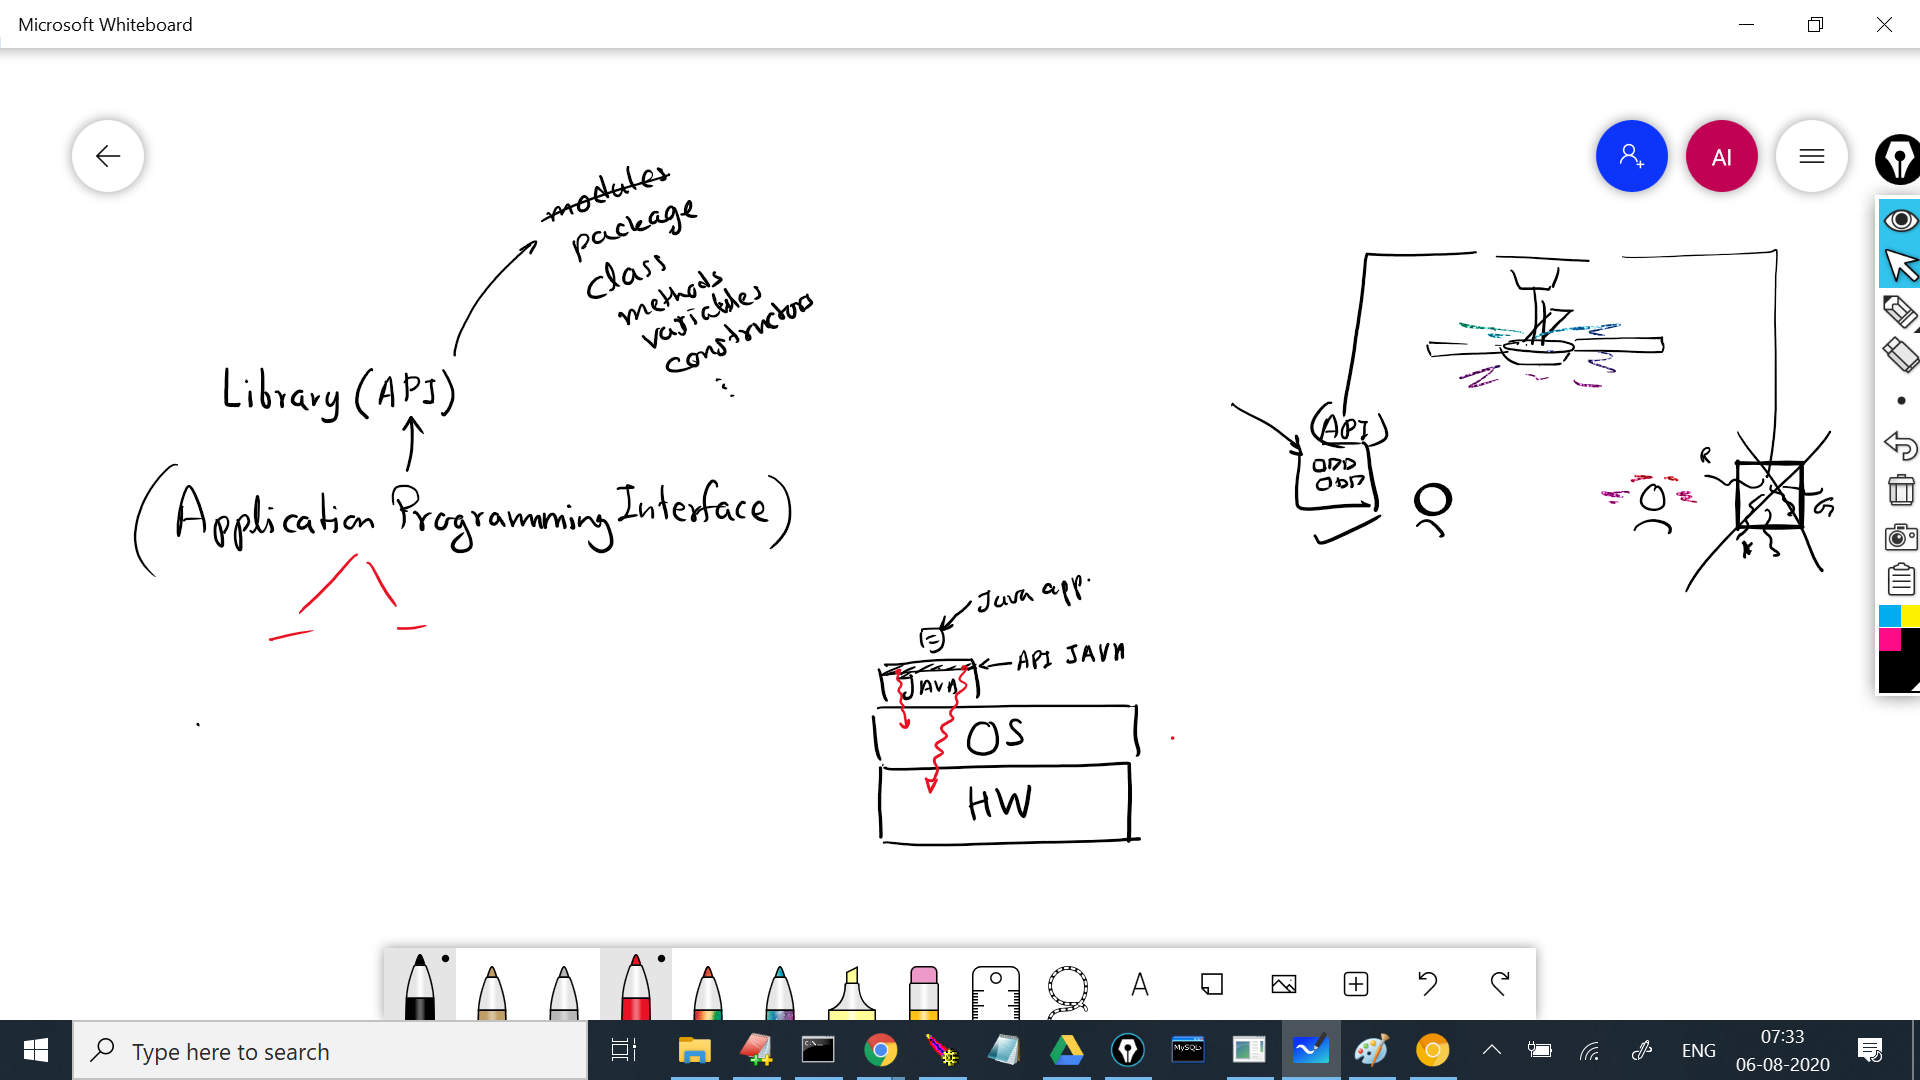 Microsoft Whiteboard
AI
modules
package
class
methods
variables
constructors
Library (API)
(Application Programming Interface)
(API)
R
G
Java app.
API JAVA
JAVA
OS
HW
A
Type here to search
MySQL
ENG
07:33
06-08-2020